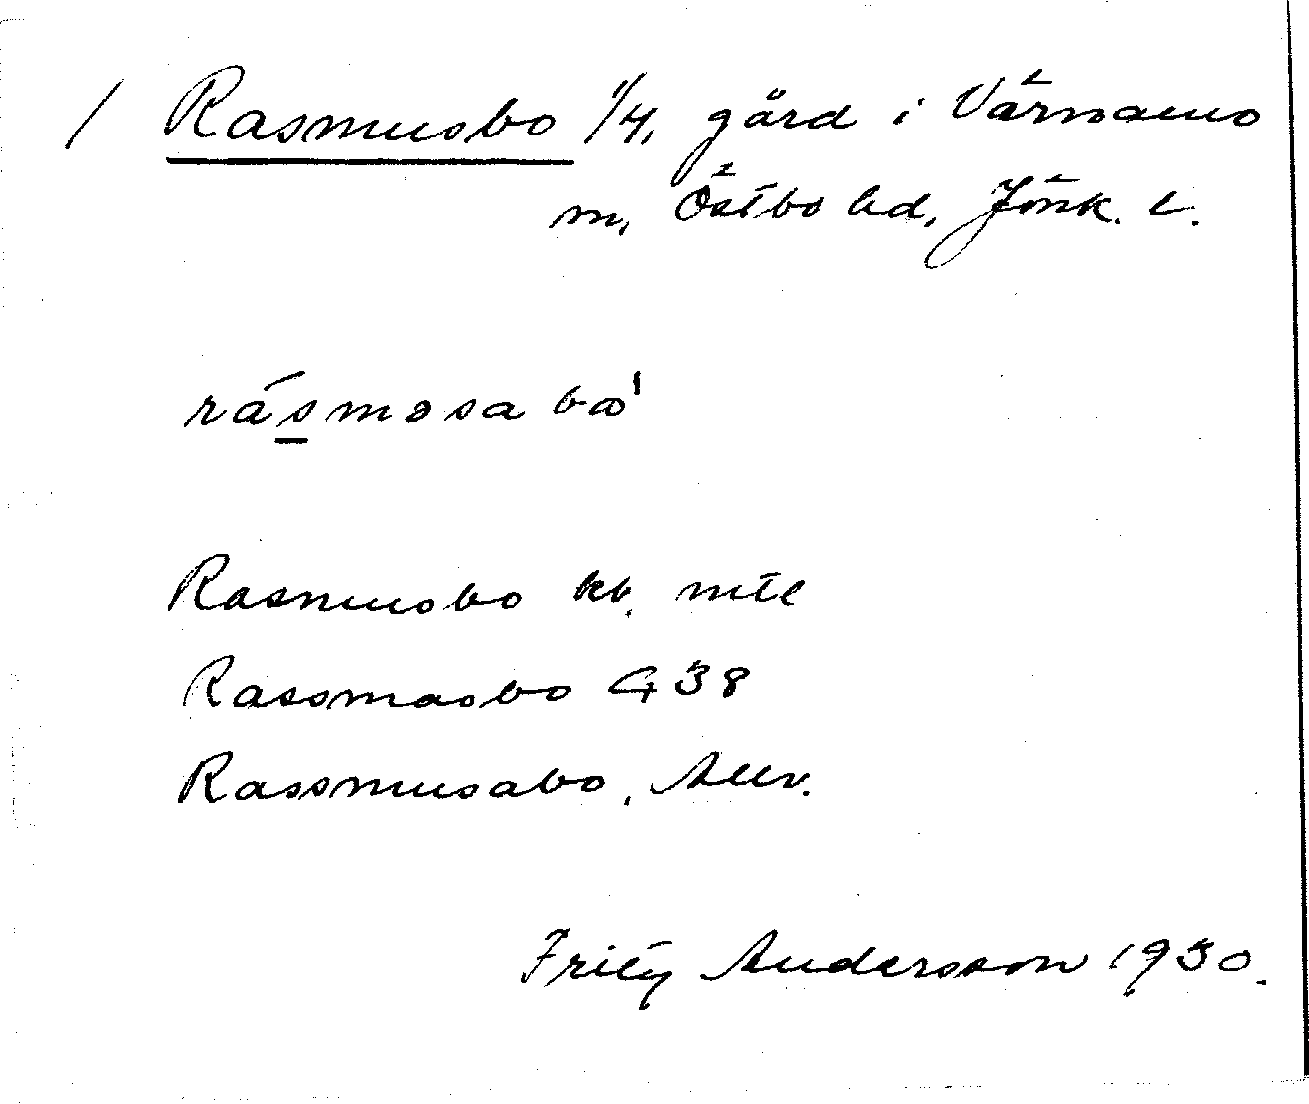 / Rasmusbo 1/4, gård i Värnamo
m, Östbo hd, Jönk. l.
rásmosa bω'
Rasmusbo kb. mtl
Rassmasbo G 38
Rassmusabo, Allv.
Fritz Andersson 1930.